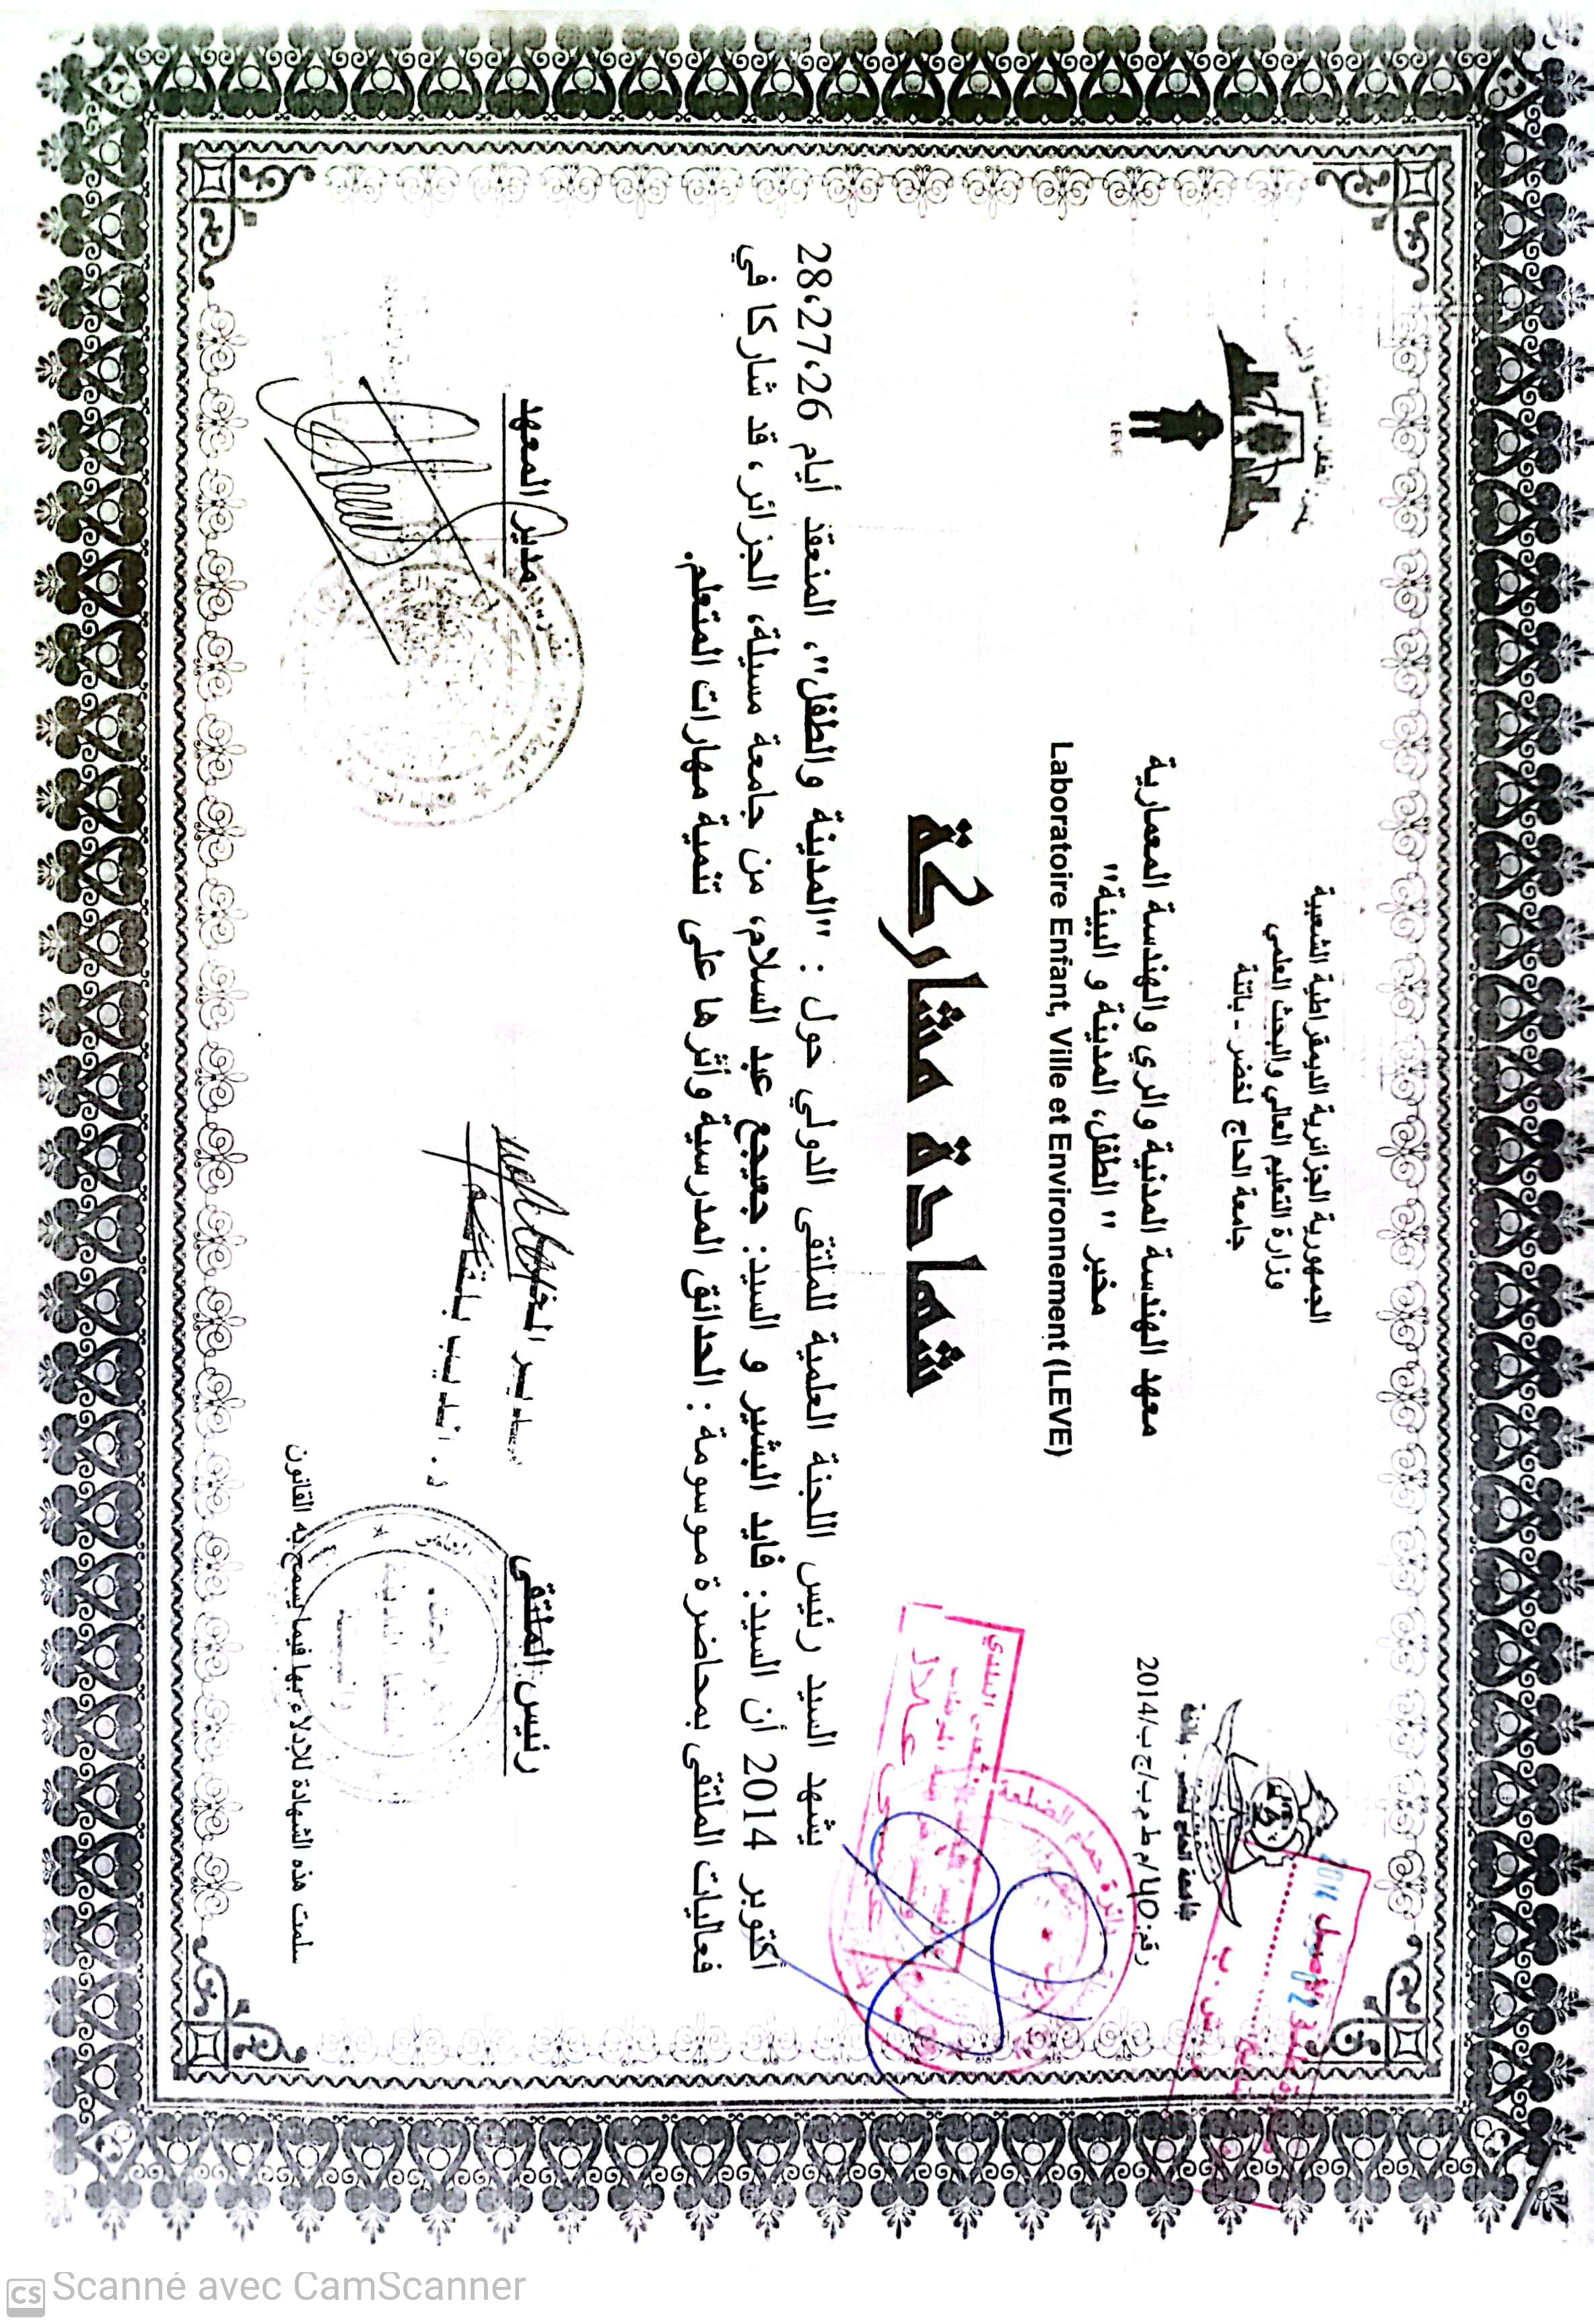 الجمهورية الجزائرية الديمقراطية الشعبية
وزارة التعليم العالي والبحث العلمي
جامعة الحاج لخضر - باتنة
جامعة الحاج لخضر - باتنة
رقم: 40/م ط م ب/ج ب/2014
LEVE
معهد الهندسة المدنية والري والهندسة المعمارية
مخبر " الطفل، المدينة و البيئة"
Laboratoire Enfant, Ville et Environnement (LEVE)
شهادة مشاركة
يشهد السيد رئيس اللجنة العلمية للملتقى الدولي حول : "المدينة والطفل"، المنعقد أيام 26،27،28
أكتوبر 2014 أن السيد: فايد البشير و السيد: جعيجع عبد السلام، من جامعة مسيلة، الجزائر، قد شاركا في
فعاليات الملتقى بمحاضرة موسومة : الحدائق المدرسية وأثرها على تنمية مهارات المتعلم.
رئيس الملتقى
مدير المعهد
سلمت هذه الشهادة للإدلاء بها فيما يسمح به القانون
Scanné avec CamScanner